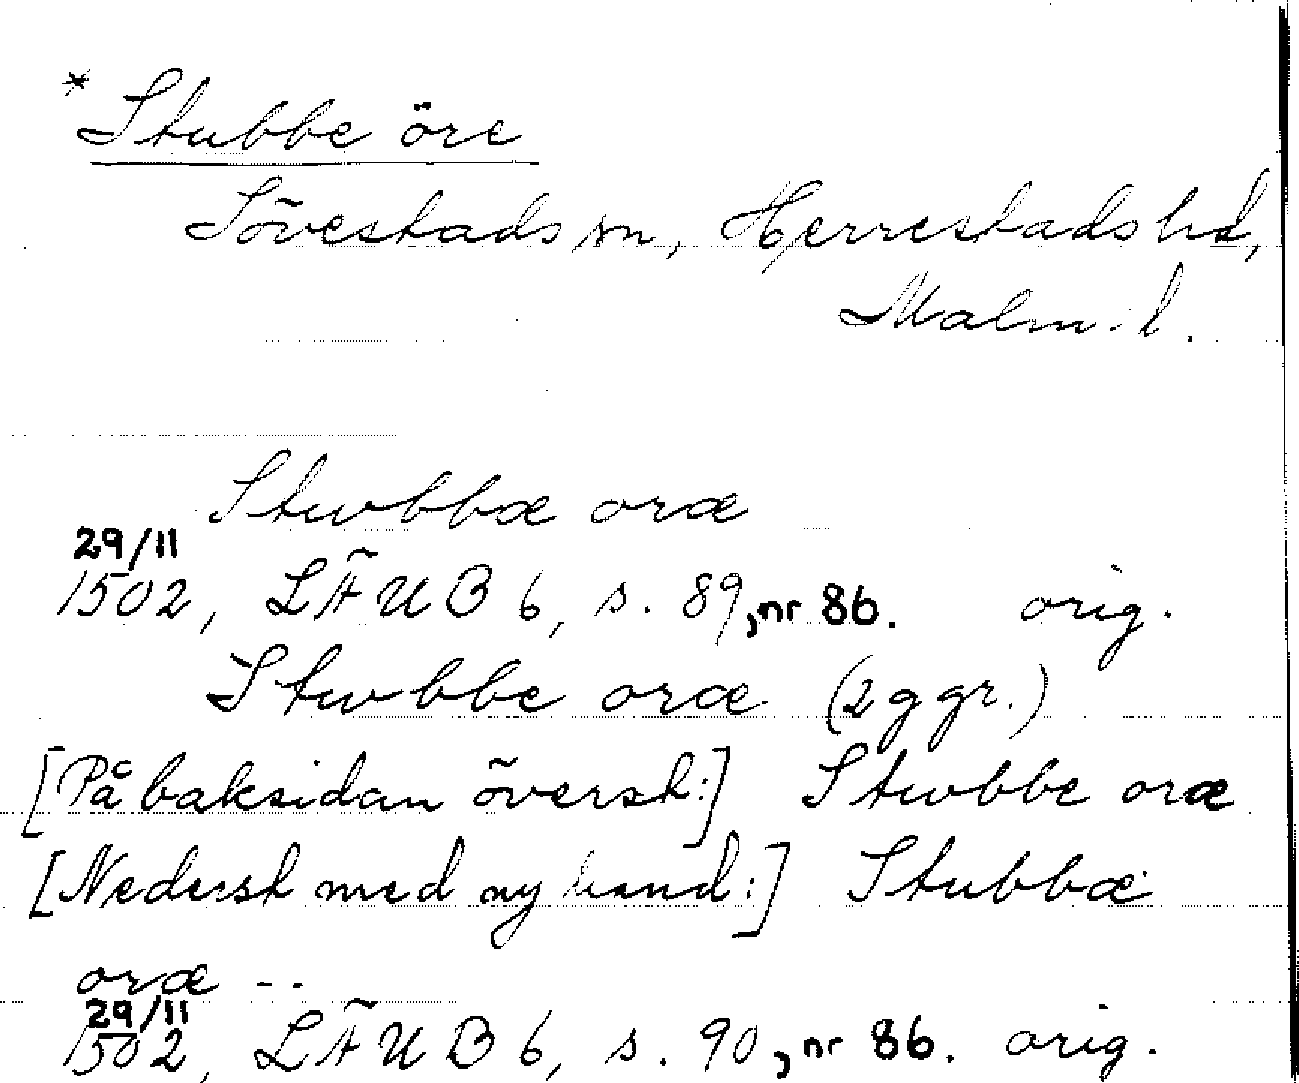 * Stubbe öre
Sövestads sn, Herrestads hd,
Malm. l.
Stwbbæ oræ
29/11
1502, LÄUB 6, s. 89, nr 86. orig.
Stwbbe oræ (2 ggr.)
[På baksidan överst:] Stwbbe oræ
[Nederst med ny hand:] Stubbæ
oræ --
29/11
1502, LÄUB 6, s. 90, nr 86. orig.